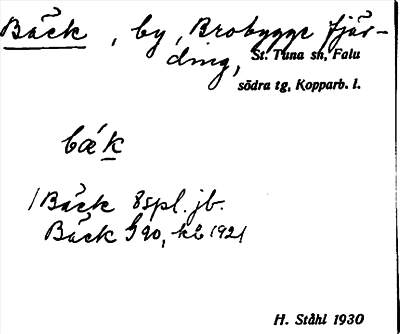 Bäck, by, Brobygge fjär-
ding, St. Tuna sn, Falu
södra tg, Kopparb. l.
bæ´k
/Bäck 8spl. jb.
Bäck G 90, kb 1921
H. Ståhl 1930